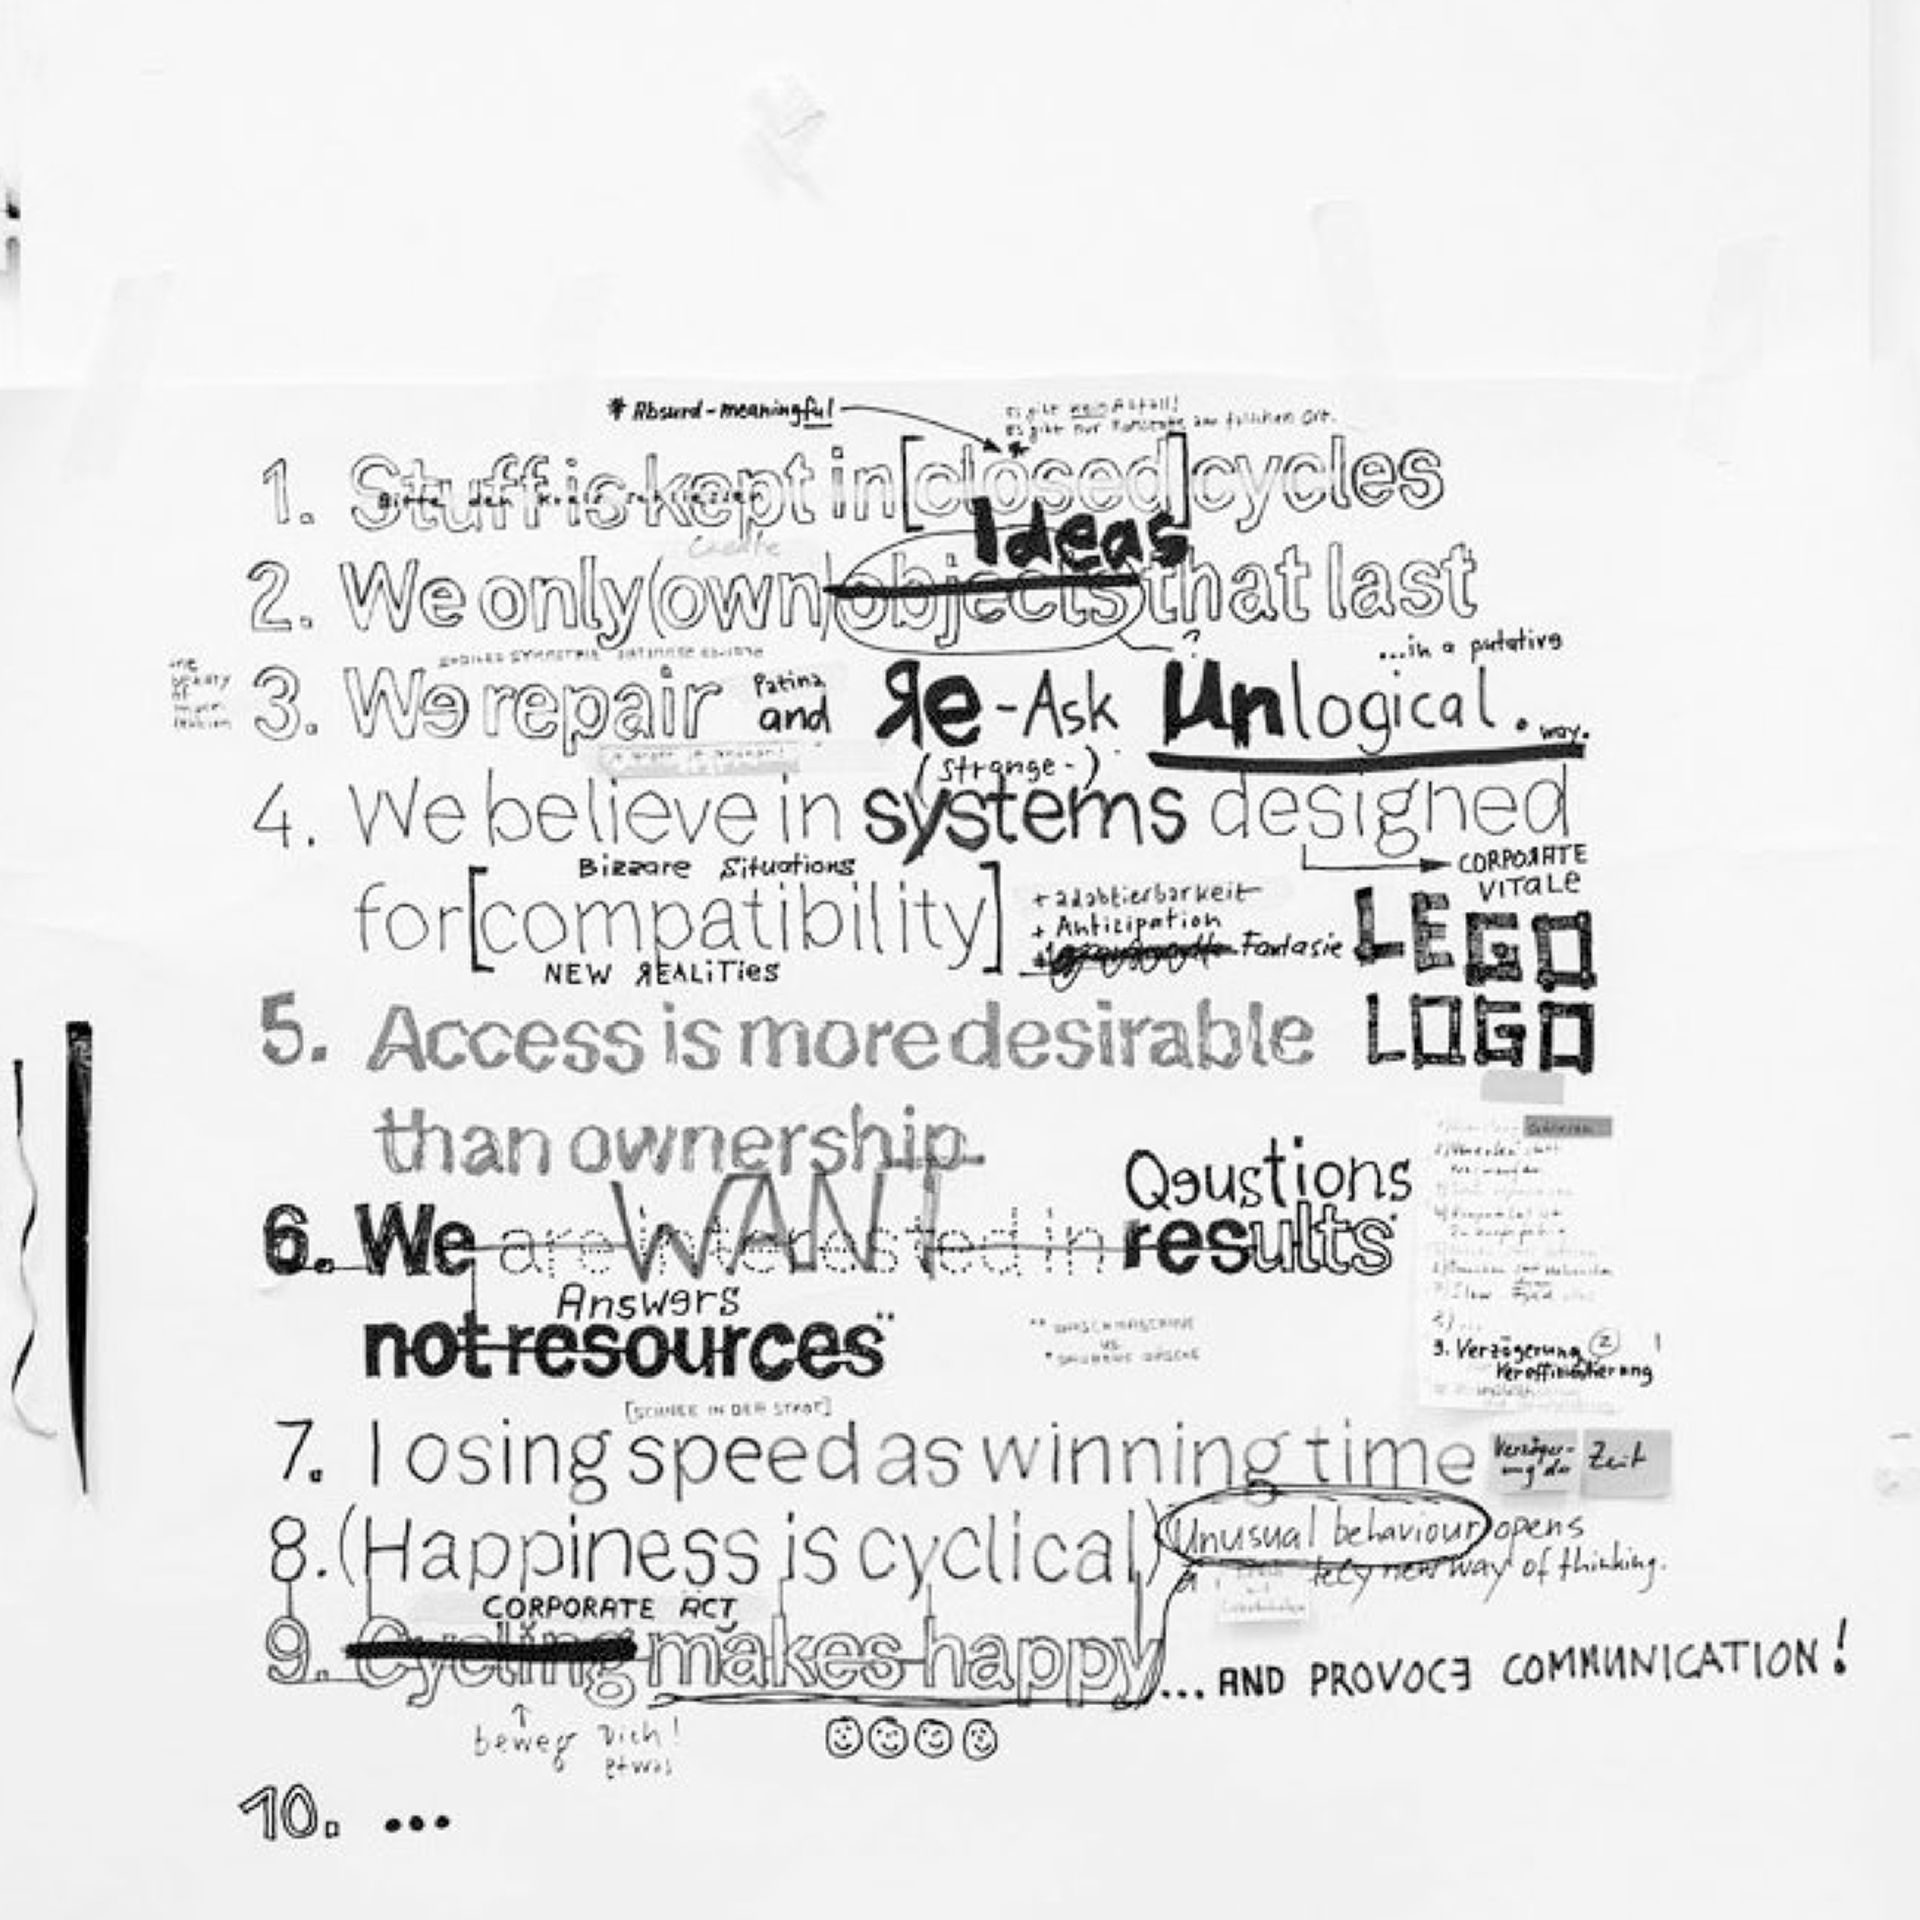 * Absurd-meaningful
es gibt kein Abfall!
es gibt nur am falschen Ort.
1. Stuff is kept in [closed] cycles
Bitte den Kreis schliessen
Ideas
Create
2. We only (own) objects that last
?
...in a putative
the beauty of
3. We repair Patina and Re-Ask Unlogical. way.
(Strange-)
4. We believe in systems designed
Bizzare Situations
CORPORATE
VITALE
for [compatibility]
+ adabtierbarkeit
+ Anticipation
+ Fantasie
LEGO
NEW REALiTies
5. Access is more desirable
LOGO
than ownership
Qeustions
WANT
6. We are interested in results*
Answers
not resources**
** WASCHMASCHINE
VS.
* SAUBERE WÄSCHE
9. Verzögerung 2
[SCHNEE IN DER STADT]
7. Losing speed as winning time
Verzöger-
ung der
Zeit
8. (Happiness is cyclical) Unusual behaviour opens
a new way of thinking.
CORPORATE ACT
9. Cycling makes happy ... AND PROVOCE COMMUNICATION!
beweg Dich!
etwas
10. ...